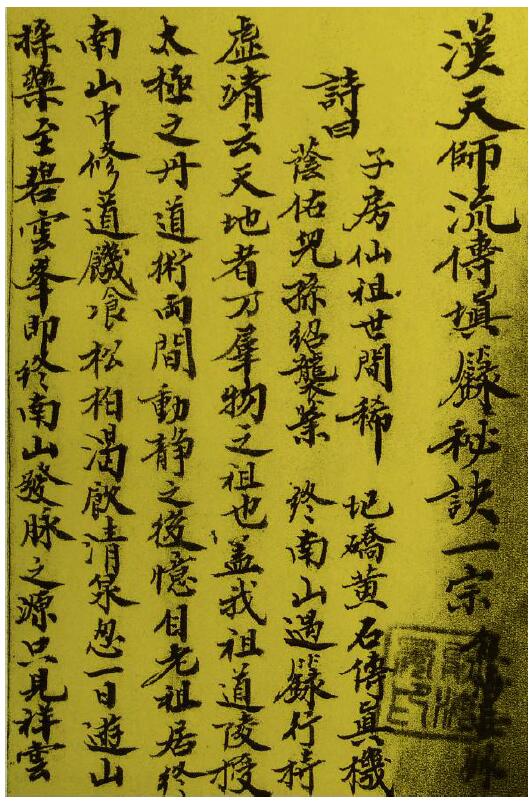 漢天師流傳填籙秘訣一宗
詩曰
子房仙祖世間稀 圯礄黃石傳眞機
蔭佑児孫紹襲業 終南山遇籙行持
虛清云天地者乃羣物之祖也盖我祖道陵授
太極之丹道術兩間動静之後憶自老祖居終
南山中修道饑飡松柏渴飲清泉忽一日遊山
採藥至碧雲峯即終南山發脉之源只見祥雲